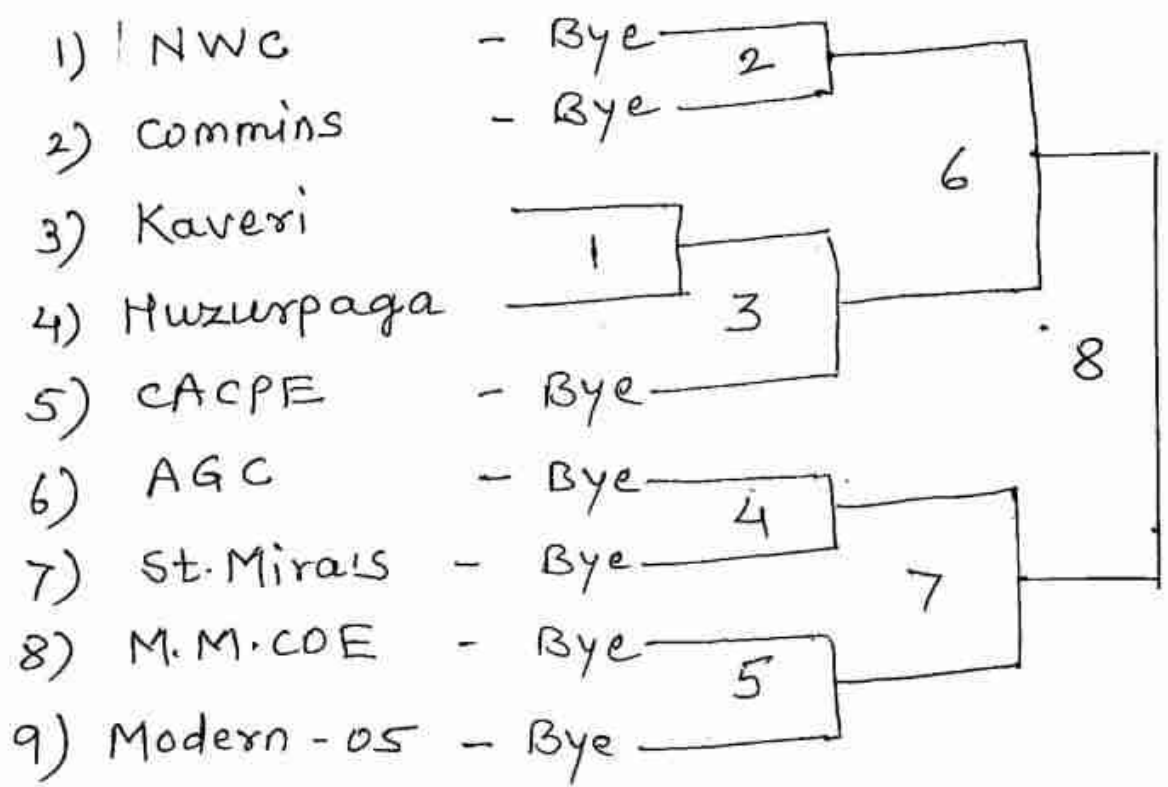 1) NWC - Bye
2
2) Commins - Bye
6
3) Kaveri
1
4) Huzurpaga
3
8
5) CACPE - Bye
6) AGC - Bye
4
7) St. Mira's - Bye
7
8) M.M.COE - Bye
5
9) Modern - 05 - Bye